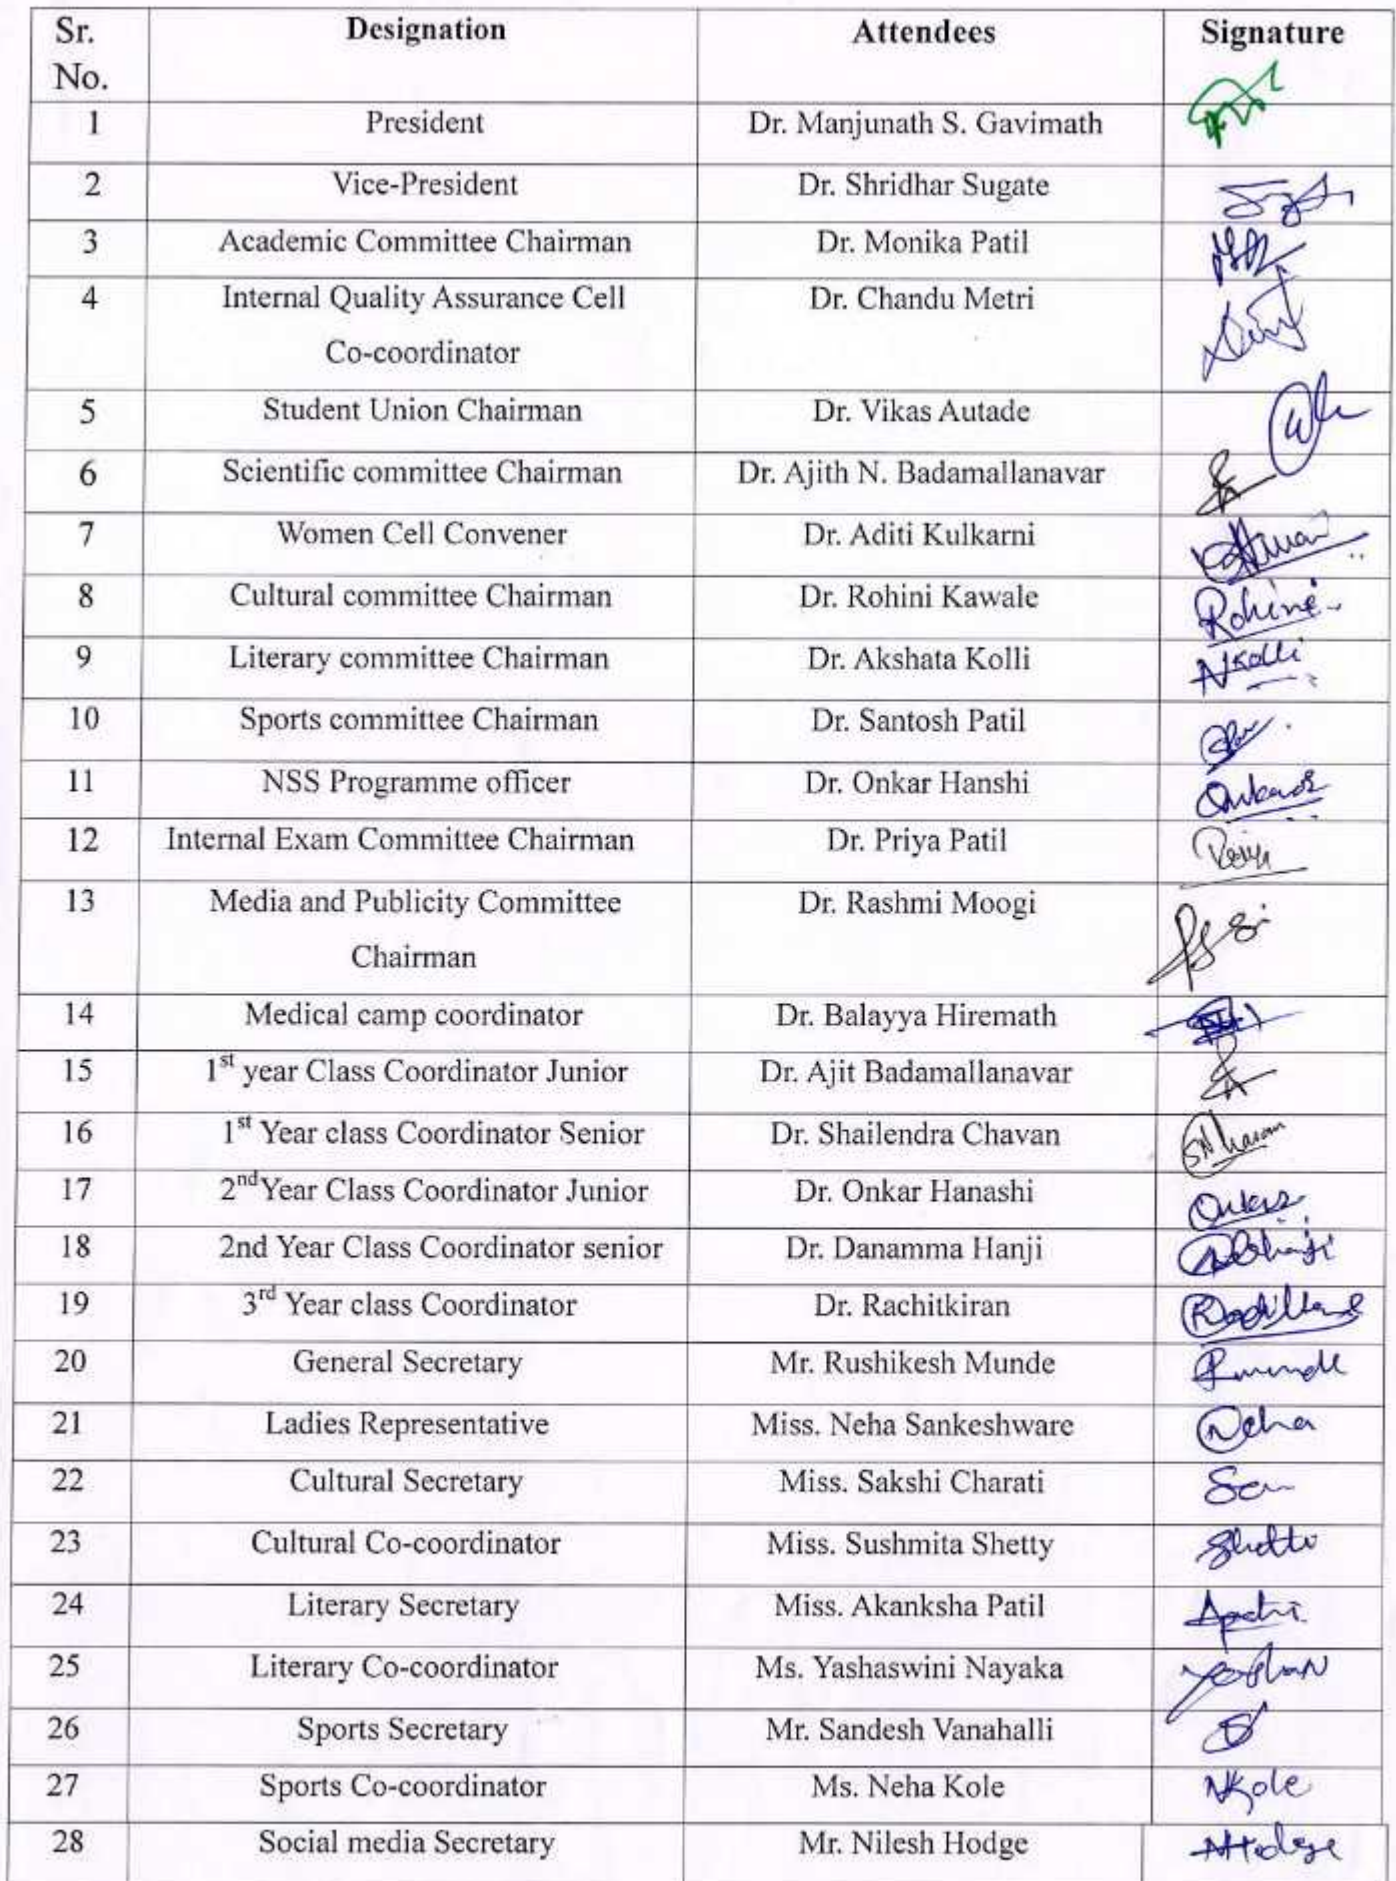 Sr. No. Designation Attendees Signature
1 President Dr. Manjunath S. Gavimath
2 Vice-President Dr. Shridhar Sugate
3 Academic Committee Chairman Dr. Monika Patil
4 Internal Quality Assurance Cell Dr. Chandu Metri
Co-coordinator
5 Student Union Chairman Dr. Vikas Autade
6 Scientific committee Chairman Dr. Ajith N. Badamallanavar
7 Women Cell Convener Dr. Aditi Kulkarni
8 Cultural committee Chairman Dr. Rohini Kawale Rohini
9 Literary committee Chairman Dr. Akshata Kolli NKolli
10 Sports committee Chairman Dr. Santosh Patil
11 NSS Programme officer Dr. Onkar Hanshi
12 Internal Exam Committee Chairman Dr. Priya Patil Priya
13 Media and Publicity Committee Dr. Rashmi Moogi
Chairman
14 Medical camp coordinator Dr. Balayya Hiremath
15 1st year Class Coordinator Junior Dr. Ajit Badamallanavar
16 1st Year class Coordinator Senior Dr. Shailendra Chavan
17 2nd Year Class Coordinator Junior Dr. Onkar Hanashi
18 2nd Year Class Coordinator senior Dr. Danamma Hanji
19 3rd Year class Coordinator Dr. Rachitkiran
20 General Secretary Mr. Rushikesh Munde Rmunde
21 Ladies Representative Miss. Neha Sankeshware Neha
22 Cultural Secretary Miss. Sakshi Charati
23 Cultural Co-coordinator Miss. Sushmita Shetty
24 Literary Secretary Miss. Akanksha Patil
25 Literary Co-coordinator Ms. Yashaswini Nayaka
26 Sports Secretary Mr. Sandesh Vanahalli
27 Sports Co-coordinator Ms. Neha Kole NKole
28 Social media Secretary Mr. Nilesh Hodge NHodge